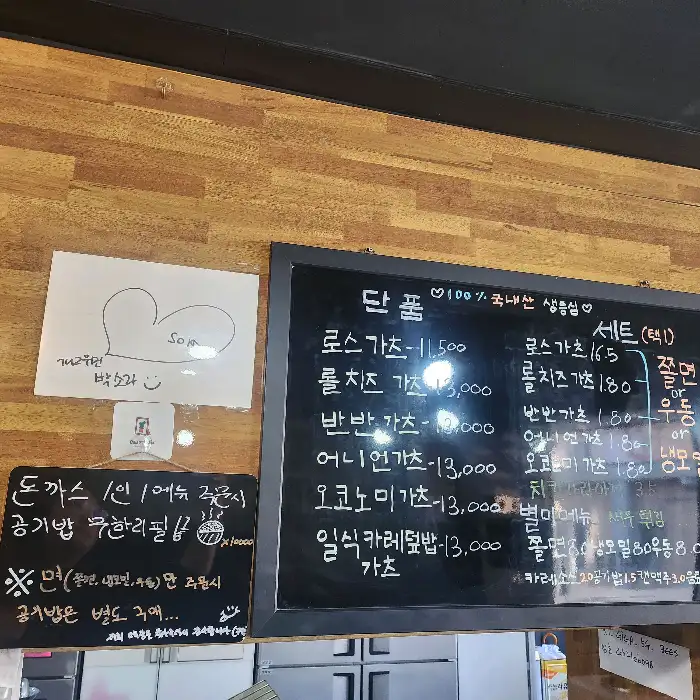 단품
♡100% 국내산 생등심♡
로스가츠-11,500
롤치즈 가츠-13,000
반반 가츠-13,000
어니언가츠-13,000
오코노미가츠-13,000
일식카레덮밥-13,000
가츠
세트(택1)
로스가츠 16.5
롤치즈가츠 18.0
반반가츠 18.0
어니언가츠 18.0
오코노미가츠 18.0
쫄면
or
우동
or
냉모밀
치킨가라아게 3.5
별미메뉴 새우튀김
쫄면8.0 냉모밀8.0 우동8.0
카레소스2.0 공기밥1.5 캔맥주3.0 음료
Sora
개그우먼
박소라
돈까스 1인 1메뉴 주문시
공기밥 무한리필
x10000
※면(쫄면, 냉모밀, 우동)만 주문시
공기밥은 별도 구매...